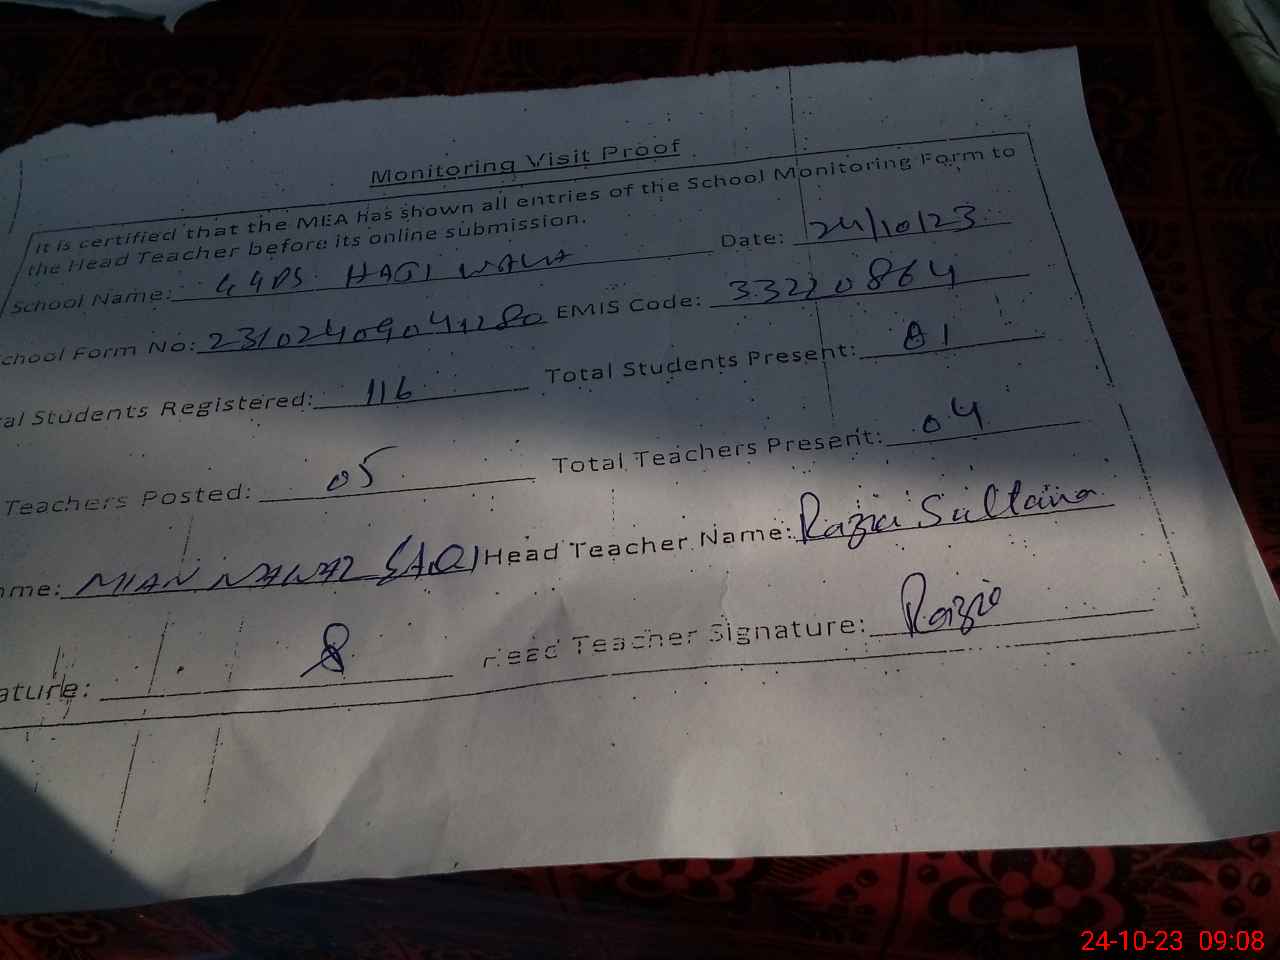 Monitoring Visit Proof
It is certified that the MEA has shown all entries of the School Monitoring Form to
the Head Teacher before its online submission.
School Name: GGPS HAGI WALA Date: 24/10/23
chool Form No: 23102409041280 EMIS Code: 33220864
al Students Registered: 116 Total Students Present: 81
Teachers Posted: 05 Total Teachers Present: 04
me: MIAN NAWAZ Head Teacher Name: Razia Sultana
ature: Head Teacher Signature: Razia
24-10-23 09:08